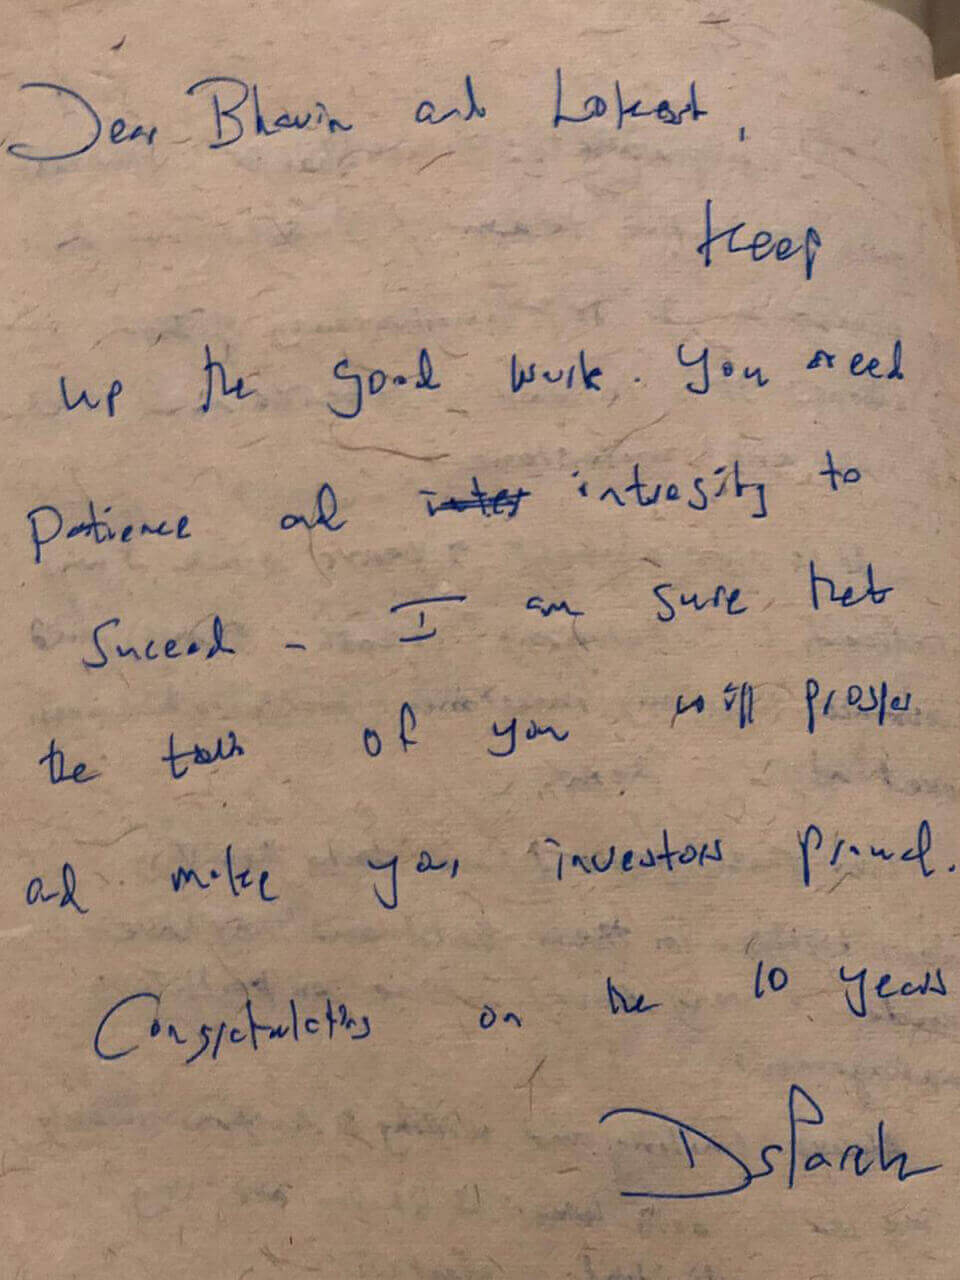 Dear Bhavin and Lokesh,
Keep
up the good work. You need
Patience and intensity to
Suceed - I am sure that
the two of you will prosper
and make your investors proud.
Congratulations on the 10 years
DSParekh